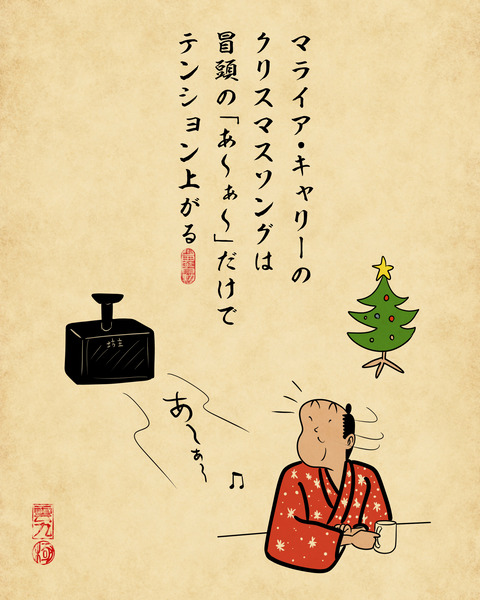 マライア・キャリーの
クリスマスソングは
冒頭の「あ〜ぁ〜」だけで
テンション上がる
坊主
あ〜ぁ〜